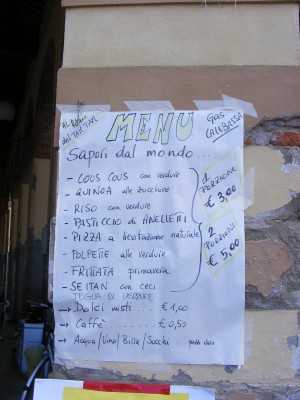 MENU
GAS
CALEBASSA
Sapori dal mondo...
- COUS COUS con verdure
- QUINOA alle zucchine
- RISO con verdure
- PASTICCIO di PINELLETTI
- PIZZA a lievitazione naturale
- POLPETTE alle verdure
- FRITTATA primavera
- SEITAN con ceci
TEGLIA DI VERDURE
1
PORZIONE
€ 3,00
2
PORZIONI
€ 5,00
→ Dolci misti ... € 1,00
→ Caffè ... € 0,50
→ Acqua/Vino/Birra/Succhi